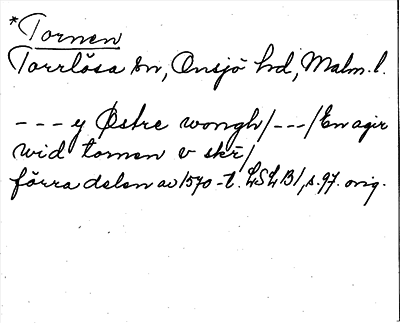 *Tornen
Torrlösa sn, Onsjö hd, Malm. l.
- - - y Østre wongh/ - - - /En agir
wid tornen v skr/
förra delen av 1570-t. LSLB1, s. 97. orig.